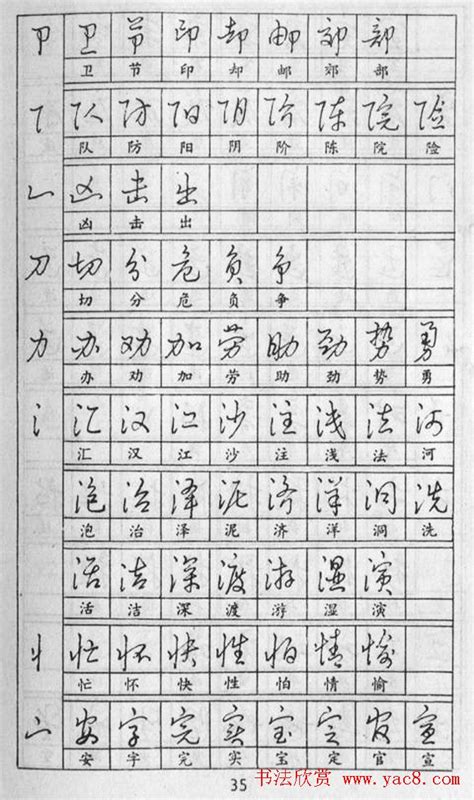 卩 卫 节 印 却 邮 郊 部
卫 节 印 却 邮 郊 部
阝 队 防 阳 阴 阶 陈 院 险
队 防 阳 阴 阶 陈 院 险
凵 凶 击 出
凶 击 出
刀 切 分 危 负 争
切 分 危 负 争
力 办 劝 加 劳 助 劲 势 勇
办 劝 加 劳 助 劲 势 勇
氵 汇 汉 江 沙 注 浅 法 河
汇 汉 江 沙 注 浅 法 河
泡 治 泽 泥 济 洋 洞 洗
泡 治 泽 泥 济 洋 洞 洗
活 洁 深 渡 游 湿 演
活 洁 深 渡 游 湿 演
忄 忙 怀 快 性 怕 情 愉
忙 怀 快 性 怕 情 愉
宀 安 字 完 实 宝 定 官 宣
安 字 完 实 宝 定 官 宣
35
书法欣赏
www.yac8.com